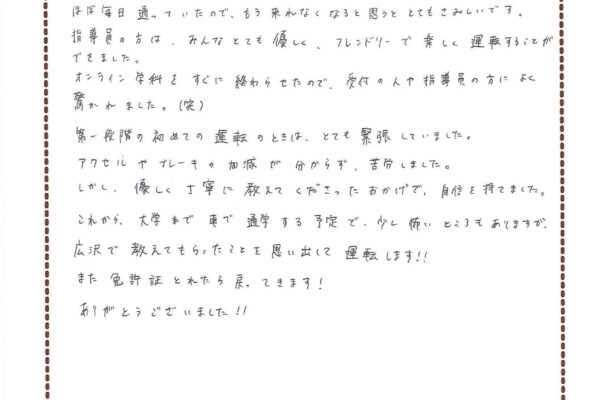 ほぼ毎日通っていたので、もう来れなくなると思うととてもさみしいです。
指導員の方は、みんなとても優しく、フレンドリーで楽しく運転することが
できました。
オンライン学科をすぐに終わらせたので、受付の人や指導員の方によく
驚かれました。(笑)
第一段階の初めての運転のときは、とても緊張していました。
アクセルやブレーキの加減が分からず、苦労しました。
しかし、優しく丁寧に教えてくださったおかげで、自信を持てました。
これから、大学まで車で通学する予定で、少し怖いところもありますが、
広沢で教えてもらったことを思い出して運転します!!
また免許証とれたら戻ってきます!
ありがとうございました!!